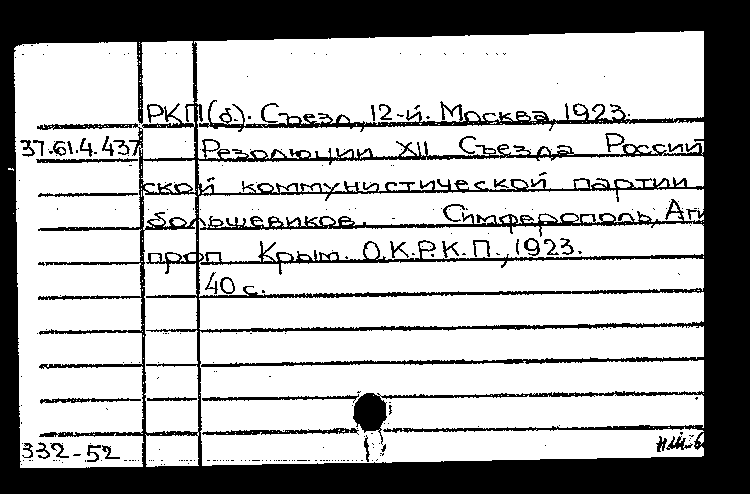 РКП(б). Съезд, 12-й. Москва, 1923.
37.61.4.437 Резолюции XII Съезда Россий
ской коммунистической партии
большевиков. Симферополь, Аги
проп Крым. О.К.Р.К.П., 1923.
40 с.
332-52